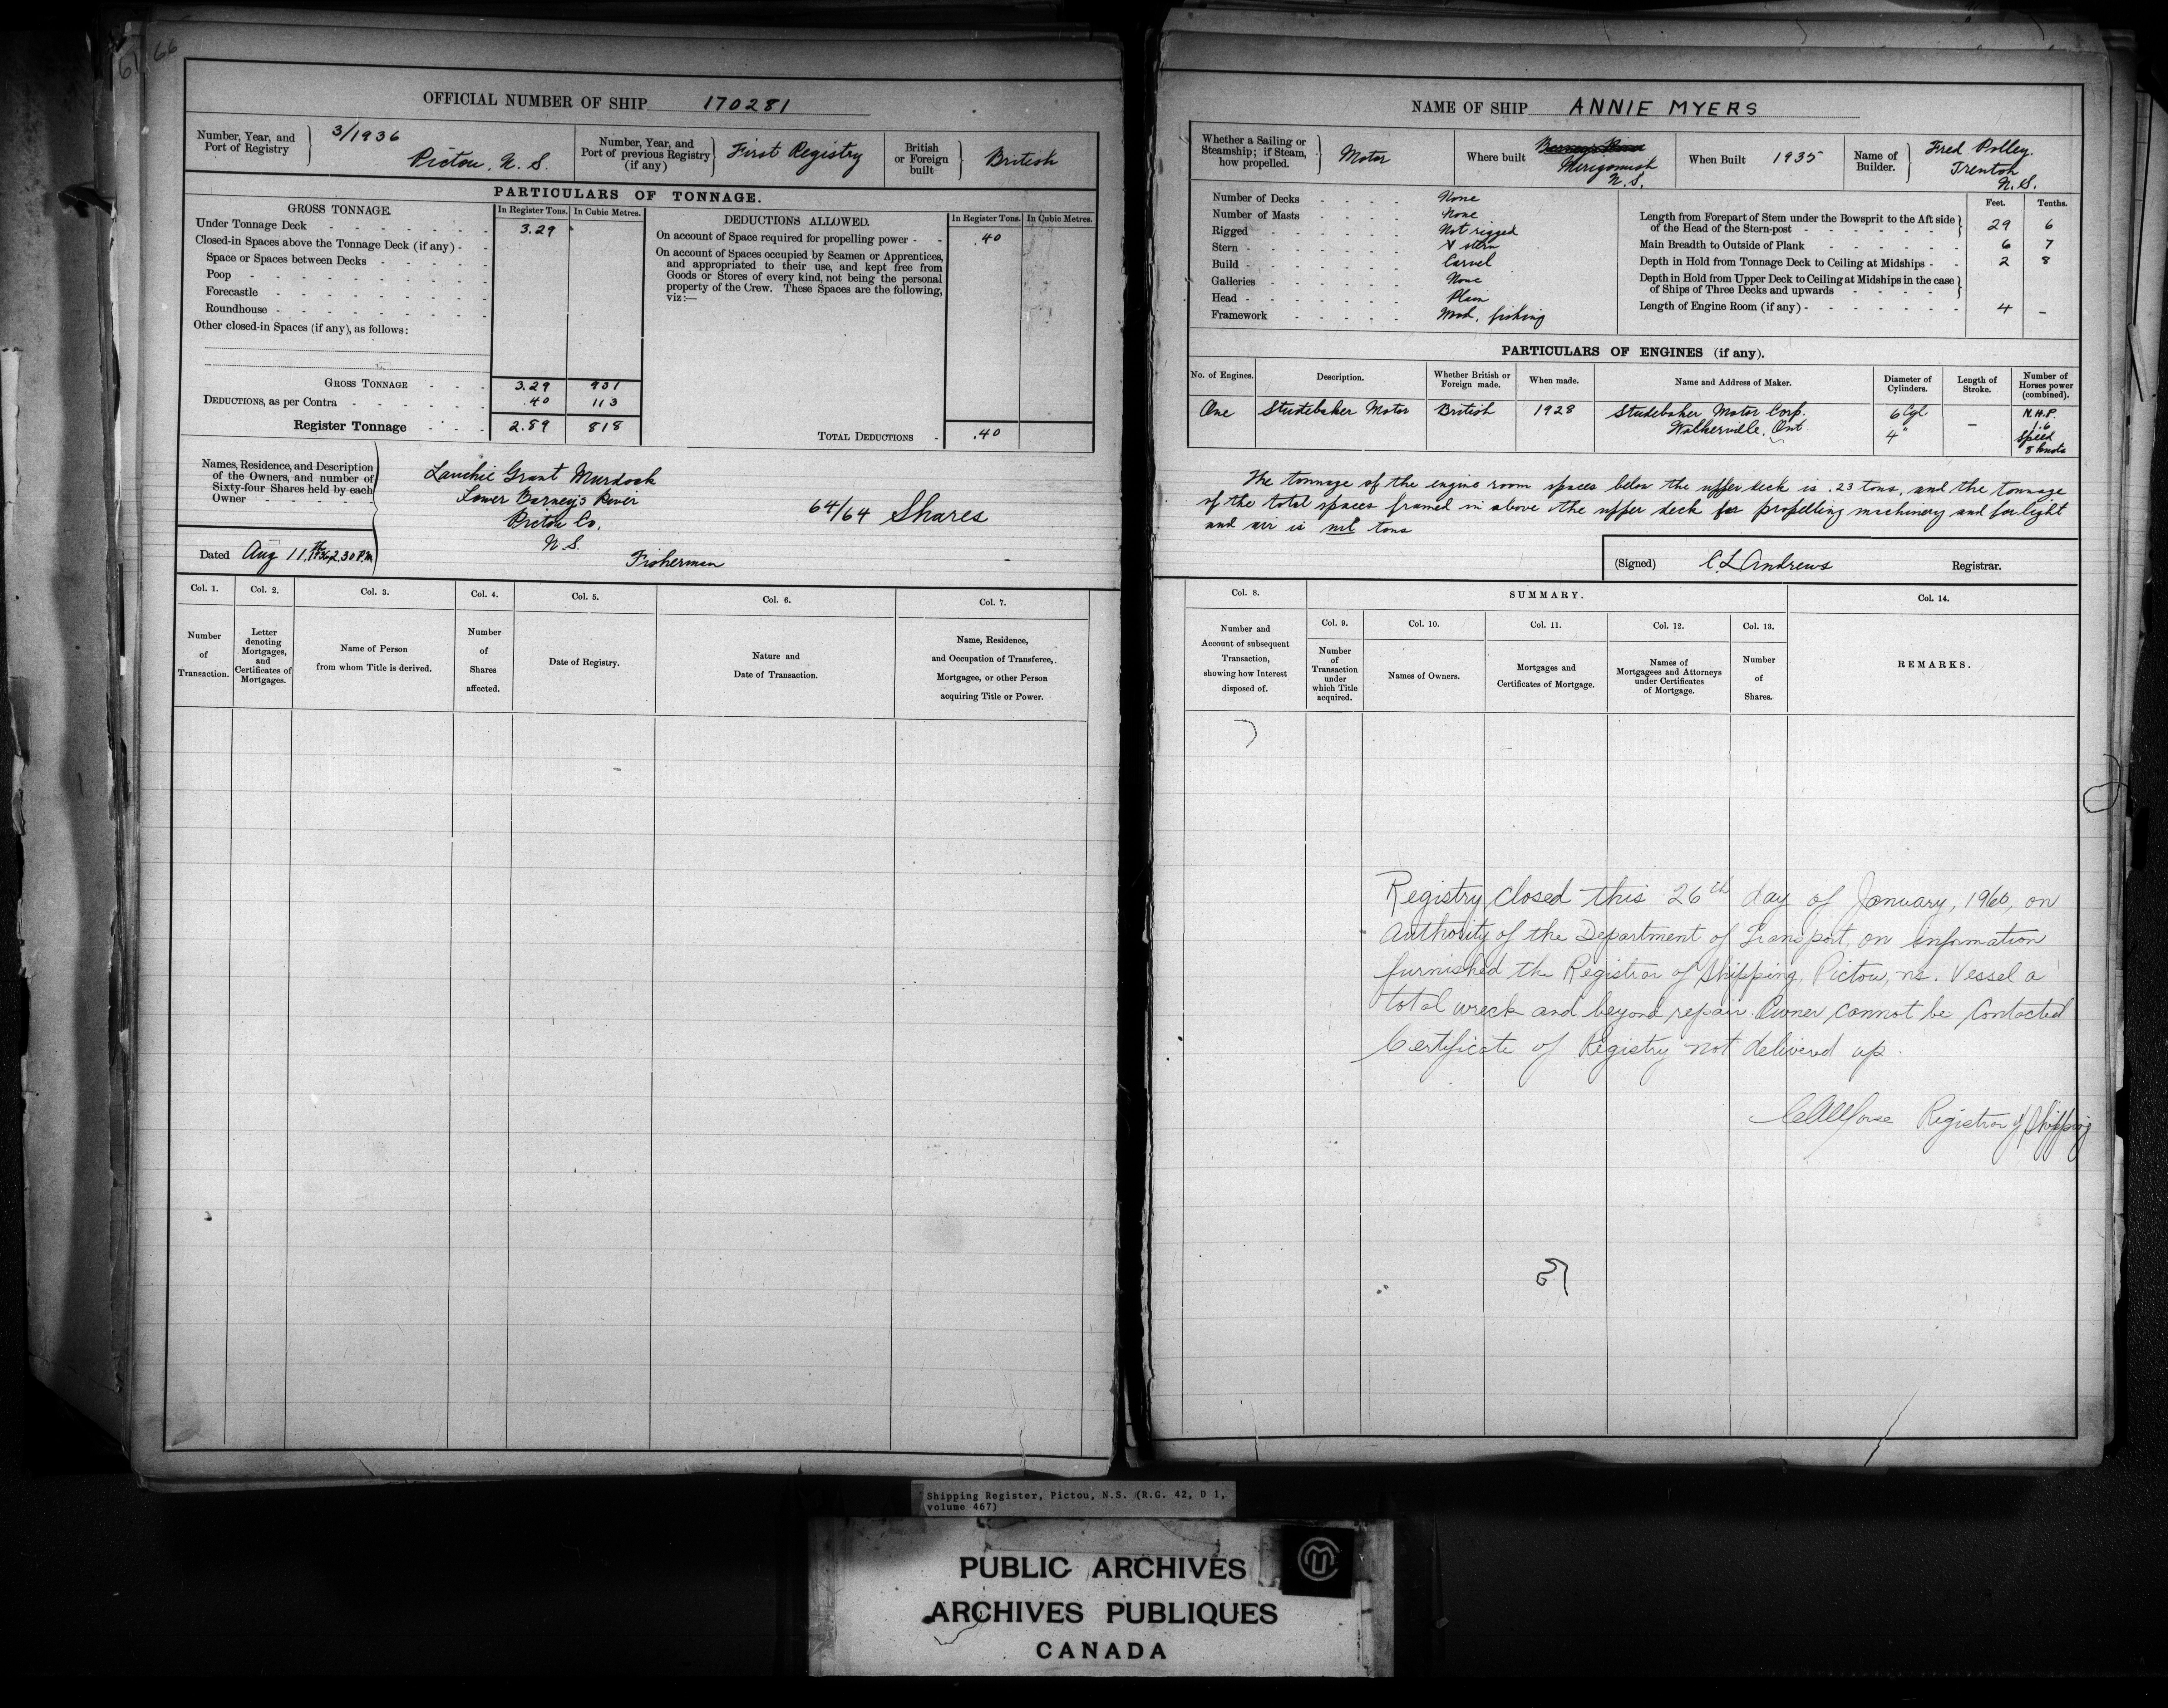 61 66
OFFICIAL NUMBER OF SHIP 170281
Number, Year, and Port of Registry
3/1936
Pictou, N. S.
Number, Year, and Port of previous Registry (if any)
First Registry
British or Foreign built
British
PARTICULARS OF TONNAGE.
GROSS TONNAGE.
In Register Tons.
In Cubic Metres.
Under Tonnage Deck 3.29
Closed-in Spaces above the Tonnage Deck (if any)
Space or Spaces between Decks
Poop
Forecastle
Roundhouse
Other closed-in Spaces (if any), as follows:
GROSS TONNAGE 3.29 931
DEDUCTIONS, as per Contra .40 113
Register Tonnage 2.89 818
DEDUCTIONS ALLOWED.
In Register Tons.
In Cubic Metres.
On account of Space required for propelling power .40
On account of Spaces occupied by Seamen or Apprentices,
and appropriated to their use, and kept free from
Goods or Stores of every kind, not being the personal
property of the Crew. These Spaces are the following,
viz:—
TOTAL DEDUCTIONS .40
Names, Residence, and Description
of the Owners, and number of
Sixty-four Shares held by each
Owner
Lauchie Grant Murdock
Lower Barney's River
Pictou Co.
N. S.
64/64 Shares
Fisherman
Dated Aug 11th, 1936, 2.30 P.M.
Col. 1.
Number
of
Transaction.
Col. 2.
Letter
denoting
Mortgages,
and
Certificates of
Mortgages.
Col. 3.
Name of Person
from whom Title is derived.
Col. 4.
Number
of
Shares
affected.
Col. 5.
Date of Registry.
Col. 6.
Nature and
Date of Transaction.
Col. 7.
Name, Residence,
and Occupation of Transferee,
Mortgagee, or other Person
acquiring Title or Power.
NAME OF SHIP ANNIE MYERS
Whether a Sailing or
Steamship; if Steam,
how propelled.
Motor
Where built
Barneys River
Merigomish
N. S.
When Built 1935
Name of
Builder.
Fred Polley
Trenton
N. S.
Number of Decks None
Number of Masts None
Rigged Not rigged
Stern V stern
Build Carvel
Galleries None
Head Plain
Framework Wood, fishing
Feet. Tenths.
Length from Forepart of Stem under the Bowsprit to the Aft side
of the Head of the Stern-post 29 6
Main Breadth to Outside of Plank 6 7
Depth in Hold from Tonnage Deck to Ceiling at Midships 2 8
Depth in Hold from Upper Deck to Ceiling at Midships in the case
of Ships of Three Decks and upwards
Length of Engine Room (if any) 4 –
PARTICULARS OF ENGINES (if any).
No. of Engines.
Description.
Whether British or
Foreign made.
When made.
Name and Address of Maker.
Diameter of
Cylinders.
Length of
Stroke.
Number of
Horses power
(combined).
One
Studebaker Motor
British
1928
Studebaker Motor Corp.
Walkerville, Ont
6 Cyl.
4"
–
N.H.P.
1.6
Speed
8 knots
The tonnage of the engine room spaces below the upper deck is .23 tons, and the tonnage
of the total spaces framed in above the upper deck for propelling machinery and for light
and air is nil tons
(Signed) C L Andrews Registrar.
Col. 8.
Number and
Account of subsequent
Transaction,
showing how Interest
disposed of.
SUMMARY.
Col. 9.
Number
of
Transaction
under
which Title
acquired.
Col. 10.
Names of Owners.
Col. 11.
Mortgages and
Certificates of Mortgage.
Col. 12.
Names of
Mortgagees and Attorneys
under Certificates
of Mortgage.
Col. 13.
Number
of
Shares.
Col. 14.
REMARKS.
Registry closed this 26th day of January, 1960, on
Authority of the Department of Transport, on information
furnished the Registrar of Shipping, Pictou, ns. Vessel a
total wreck and beyond repair. Owner cannot be contacted
Certificate of Registry not delivered up.
Registrar of Shipping
Shipping Register, Pictou, N.S. (R.G. 42, D 1,
volume 467)
PUBLIC ARCHIVES
ARCHIVES PUBLIQUES
CANADA